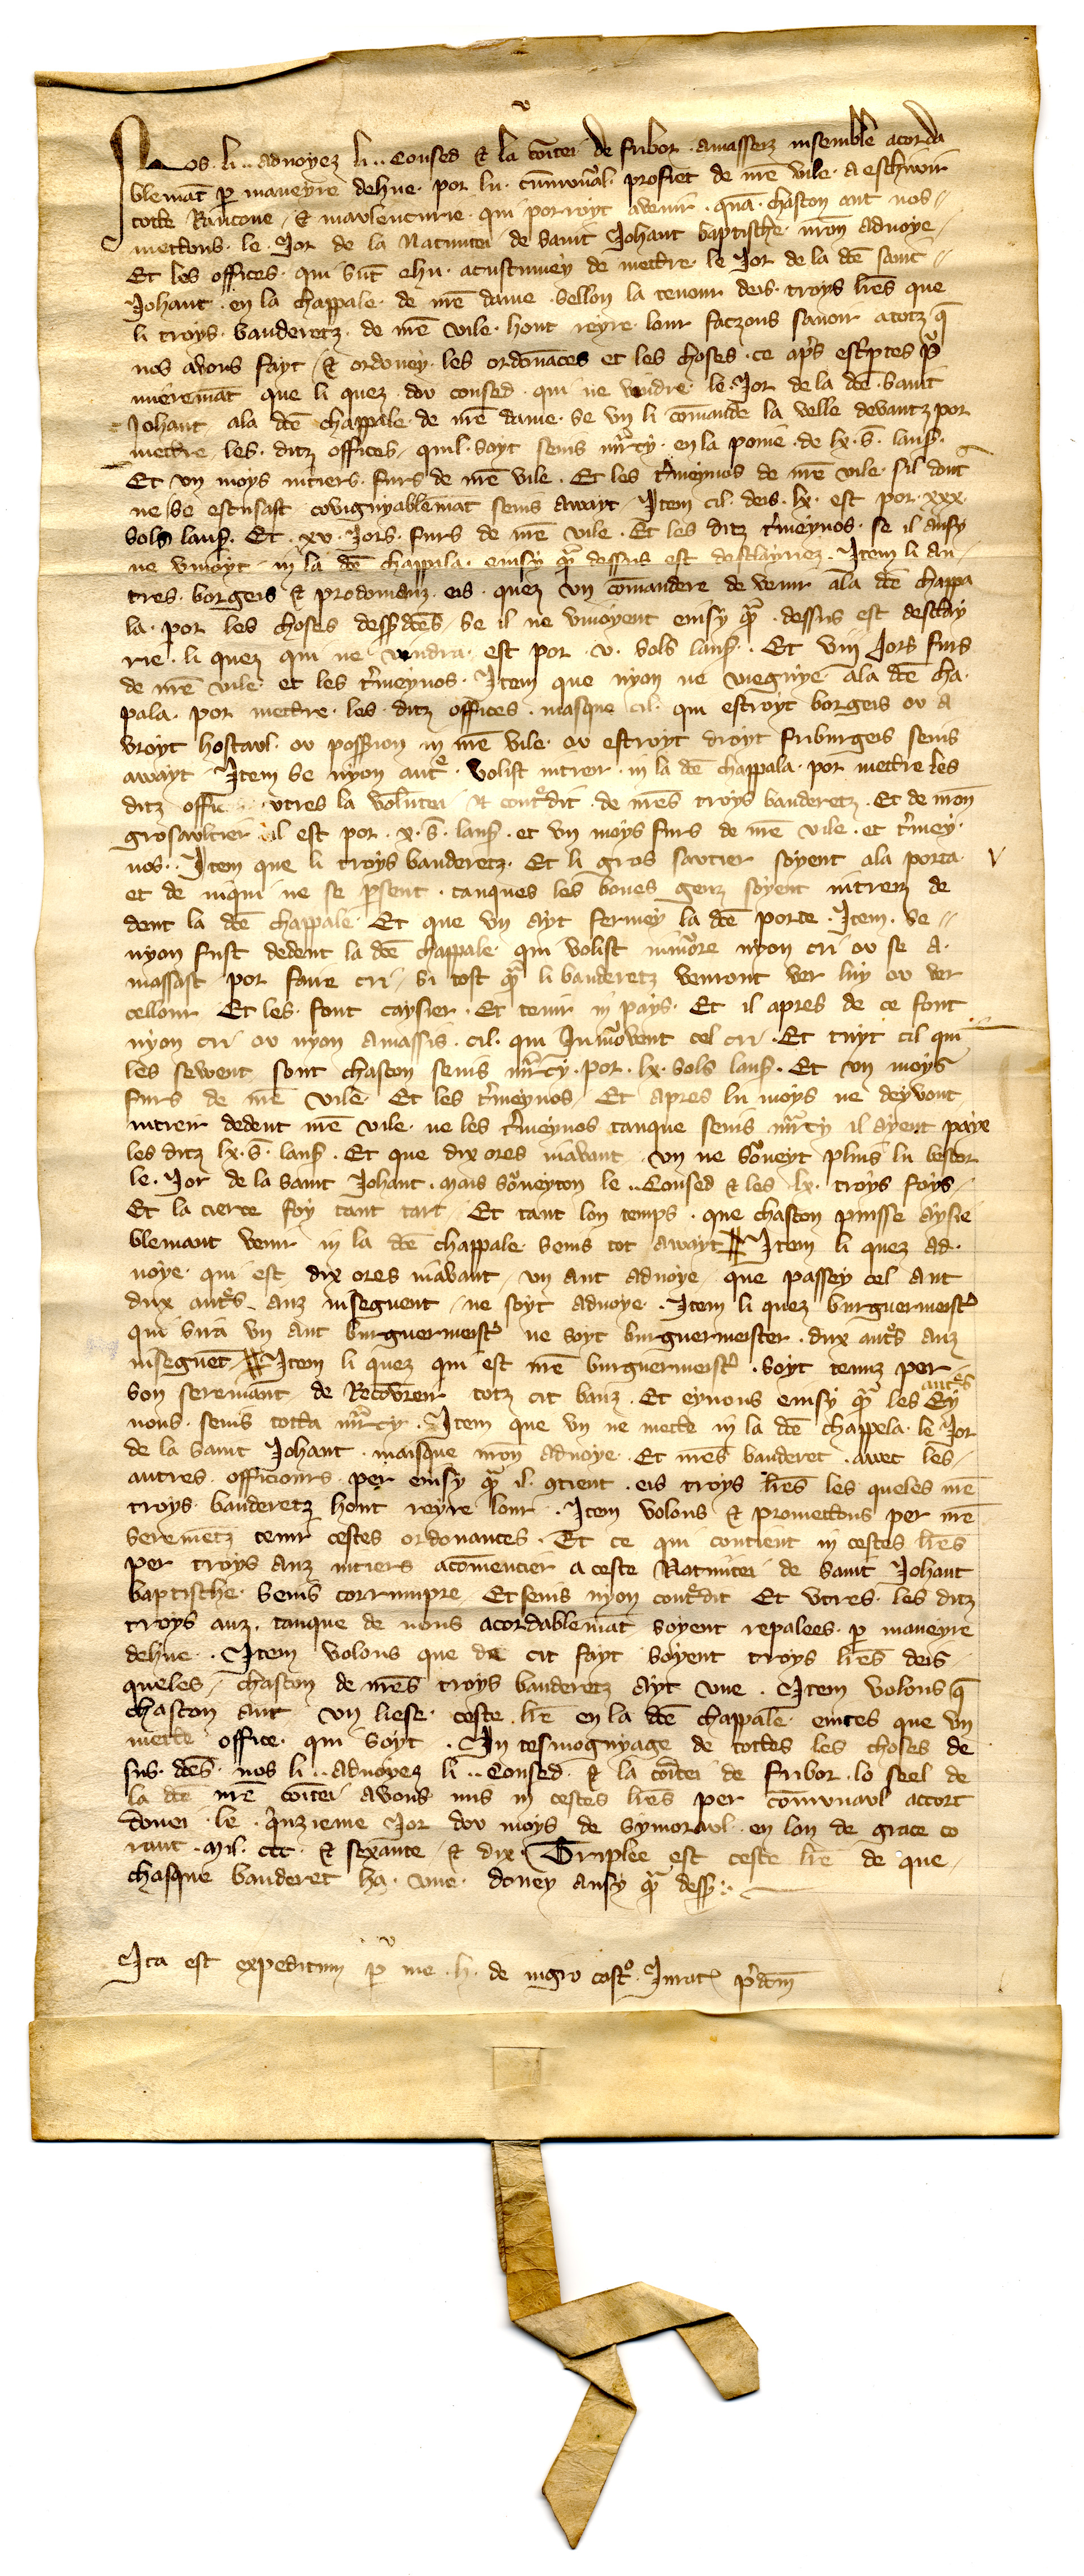 v
Nos. li .. advoyez li .. Consed et la cōtei de fribor. amasserz insemble acorda
blemāt p maneyre dehue. por lu. cumunal. profiet de nrē vile. a eschivir
totte Rancone, et mavlencurie. qui porroyt avenir. quā. chascon ant nos
mettons. le Jor de la Nativitei de saint Johant baptische. nrōn advoye
Et les offices. qui sūt ehu. acustumey de mettre. le Jor de la dcē saint
Johant. en la chappale. de nrē dame. sellon la tenour deis. troys lrēs que
li troys. banderetz. de nrē vile. hont reyre lour faczons savoir a totz q̄
nos avons fayt, et ordoney. les ordonāces et les choses. ce aprs escptes p
mieremāt que li quez. dou consed. qui ne vendre. le. Jor de la dcē. saint
Johant a la dcē chappale. de nrē dame. se vn li comande la velle devantz por
mettre les. ditz offices, quil. soyt senis mrcy. en la poine. de lx. s. laus.
Et vn moys intiers. furs de nrē vile. Et les tmeynos de nrē vile. sil dont
ne se escusast covignyablemāt senis awayt. Item cil. deis. lx. est por. xxx.
sols laus. Et. xv. Jors. furs de nrē vile. Et les ditz tmeynos. se il ansy
ne vinoyt in la dcē chappala. einsy q̄ dessus est desclayriez. Item li au
tres. borgeis et prodomanz. eis. quez vn comandere de venir a la dcē chappa
la. por les choses dess dcēs, se il ne vinoyent einsy q̄. dessus est desclay
rie. li quez qui ne vendra. est por. v. sols laus. Et viii Jors furs
de nrē vile. et les tmeynos. Item que nyon ne viegnye. a la dcē cha.
pala. por mettre. les. ditz offices. masque cil. qui estroyt borgeis ov a
vroyt hostavl. ov possion in nrē vile. ov estroyt droyt friburgeis senis
awayt. Item se nyon autre. volist intrer. in la dcē chappala. por mettre les
ditz offic vtres la volutei et contdit. de nrēs troys banderetz. Et de nrōn
grosavltier il est por. x. s. laus. et vn moys furs de nrē vile. et tmey.
nos. Item que li troys banderetz. Et li gros savtier soyent a la porta. v
et de inqui ne se psent. tanques les bones genz soyent intrerz de
dent la dcē chappale. Et que vn ayt fermey la dcē porte. Item. se
nyon fust dedent la dcē chappale. qui volist inmovre nyon cri ov se a.
massast por faire cri, si tost q̄ li banderetz venront ver luy ov ver
cellour Et les. font caysier. Et tenir in pays. Et il apres de ce font
nyon cri ov nyon amassis. cil. qui Inmovent cel cri. Et tuyt cil qui
les sewent sont chascon senis mrcy. por. lx. sols laus. Et vn moys
furs de nrē vile. Et les tmeynos, Et apres lu moys ne deyvont
intreir dedent nrē vile. ne les tmeynos tanque senis mrcy il ayent paye
les ditz lx. s. laus. Et que dix ores inavant. vn ne soneyt plus lu bescor
le. Jor de la saint Johant. mais soneyton le .. Consed et les lx. troys foys.
Et la tierce foy tant tart, Et tant lon temps. que chascon puisse aysie
blemant venir in la dcē chappale. senis tot awayt. Item li quez ad.
voye. qui est dix ores inavant, vn ant advoye, que passey cel ant
dux autres anz inseguent, ne soyt advoye. Item li quez burguermeist
qui sira vn ant burguermeist ne soyt burguermeister. dux autrs anz
inseguēt. Item li quez qui est nrē burguermeist. soyt tenuz per
son seremant de Recovreir totz cit banz. Et eynons einsy q̄ les autres Ey
nons. senis totta mrcy. Item que vn ne mette in la dcē chappela. le Jor
de la saint Johant. maisque nrōn advoye. Et nrēs banderet. avec les
autres. officiours. per einsy q̄ il. 9tient. eis troys lrēs les queles nrē
troys. banderetz hont reyre lour. Item volons et promettons per nrē
seremētz tenir cestes ordonances. Et ce qui contient in cestes lrēs
per troys anz intiers acomencier a ceste Nativitei de saint Johant
baptische. senis corrumpre Et senis nyon contdit Et vtres. les ditz
troys anz. tanque de nons acordablemāt soyent repalees. p maneyre
dehue. Item volons que de cit fayt soyent troys lrēs deis
queles, chascon de nrēs troys banderetz ayt vne. Item volons q̄
chascon ant vn liese. ceste lrē en la dcē chappale. eintes que vn
mette office. qui soyt. In tesmognyage de tottes les choses de
sus. dcēs. nos li .. advoyez li .. Consed. et la cōtei de fribor. lo seel de
la dcē nrē cōitei avons mis in cestes lrēs per comunavl accort
donei. le. qinzieme Jor dov moys de symoravl. en lan de grace co
rant. mil. ccc. et sexante, et dix. Triplee est ceste lrē de que,
chasque banderet ha. vne. doney ansy q̄ dess.
Ita est expeditum p me. h. de nigro cast. Jurat pdcm